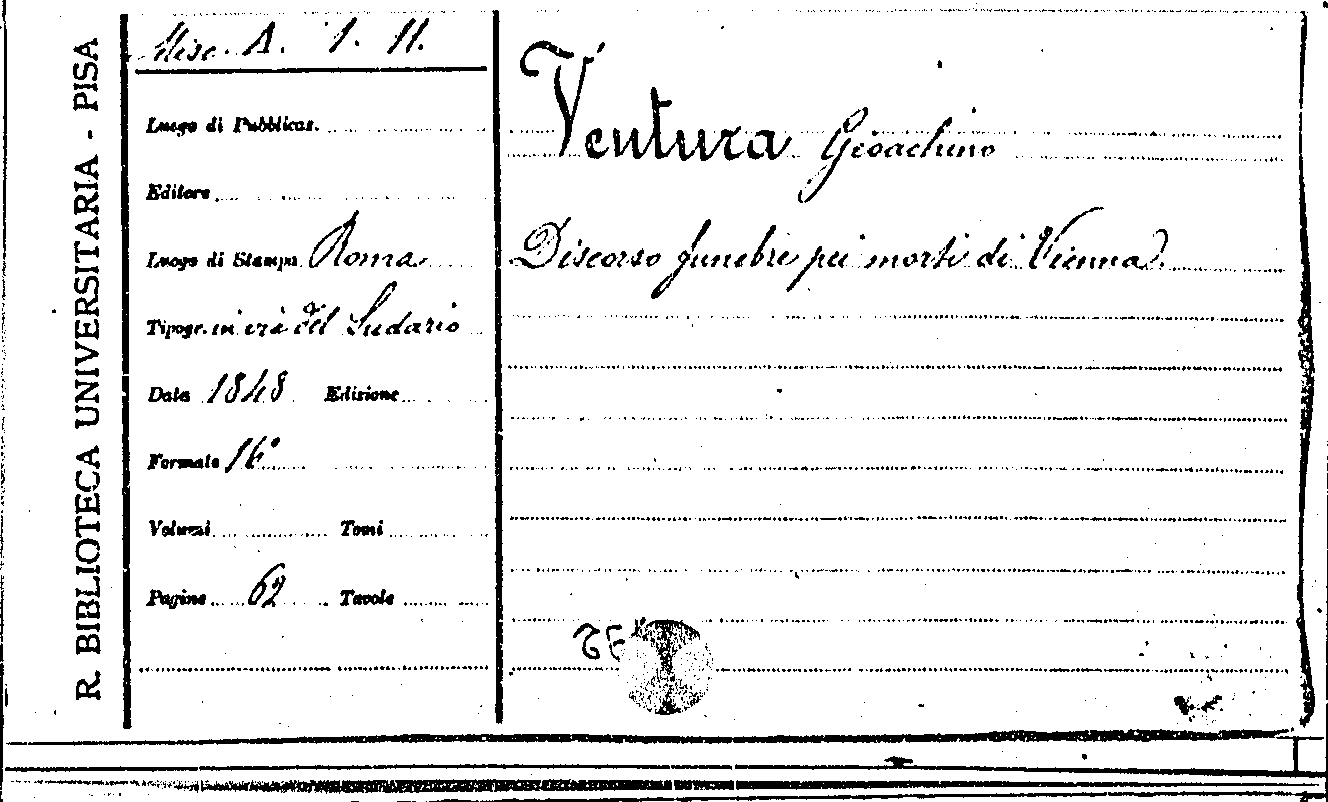 R. BIBLIOTECA UNIVERSITARIA - PISA
Misc. A. 1. 11.
Luogo di Pubblicaz.
Editore
Luogo di Stampa Roma
Tipogr. in via del Sudario
Data 1848 Edizione
Formato 16°
Volumi Tomi
Pagine 62 Tavole
Ventura Gioachino
Discorso funebre pei morti di Vienna.